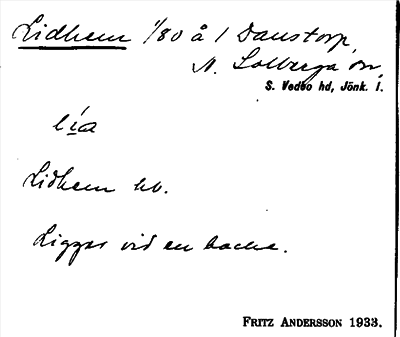 Lidhem 1/80 å 1 Danstorp,
N. Solberga sn,
S. Vedbo hd, Jönk. l.
lía
Lidhem hb.
Ligger vid en backe.
FRITZ ANDERSSON 1933.